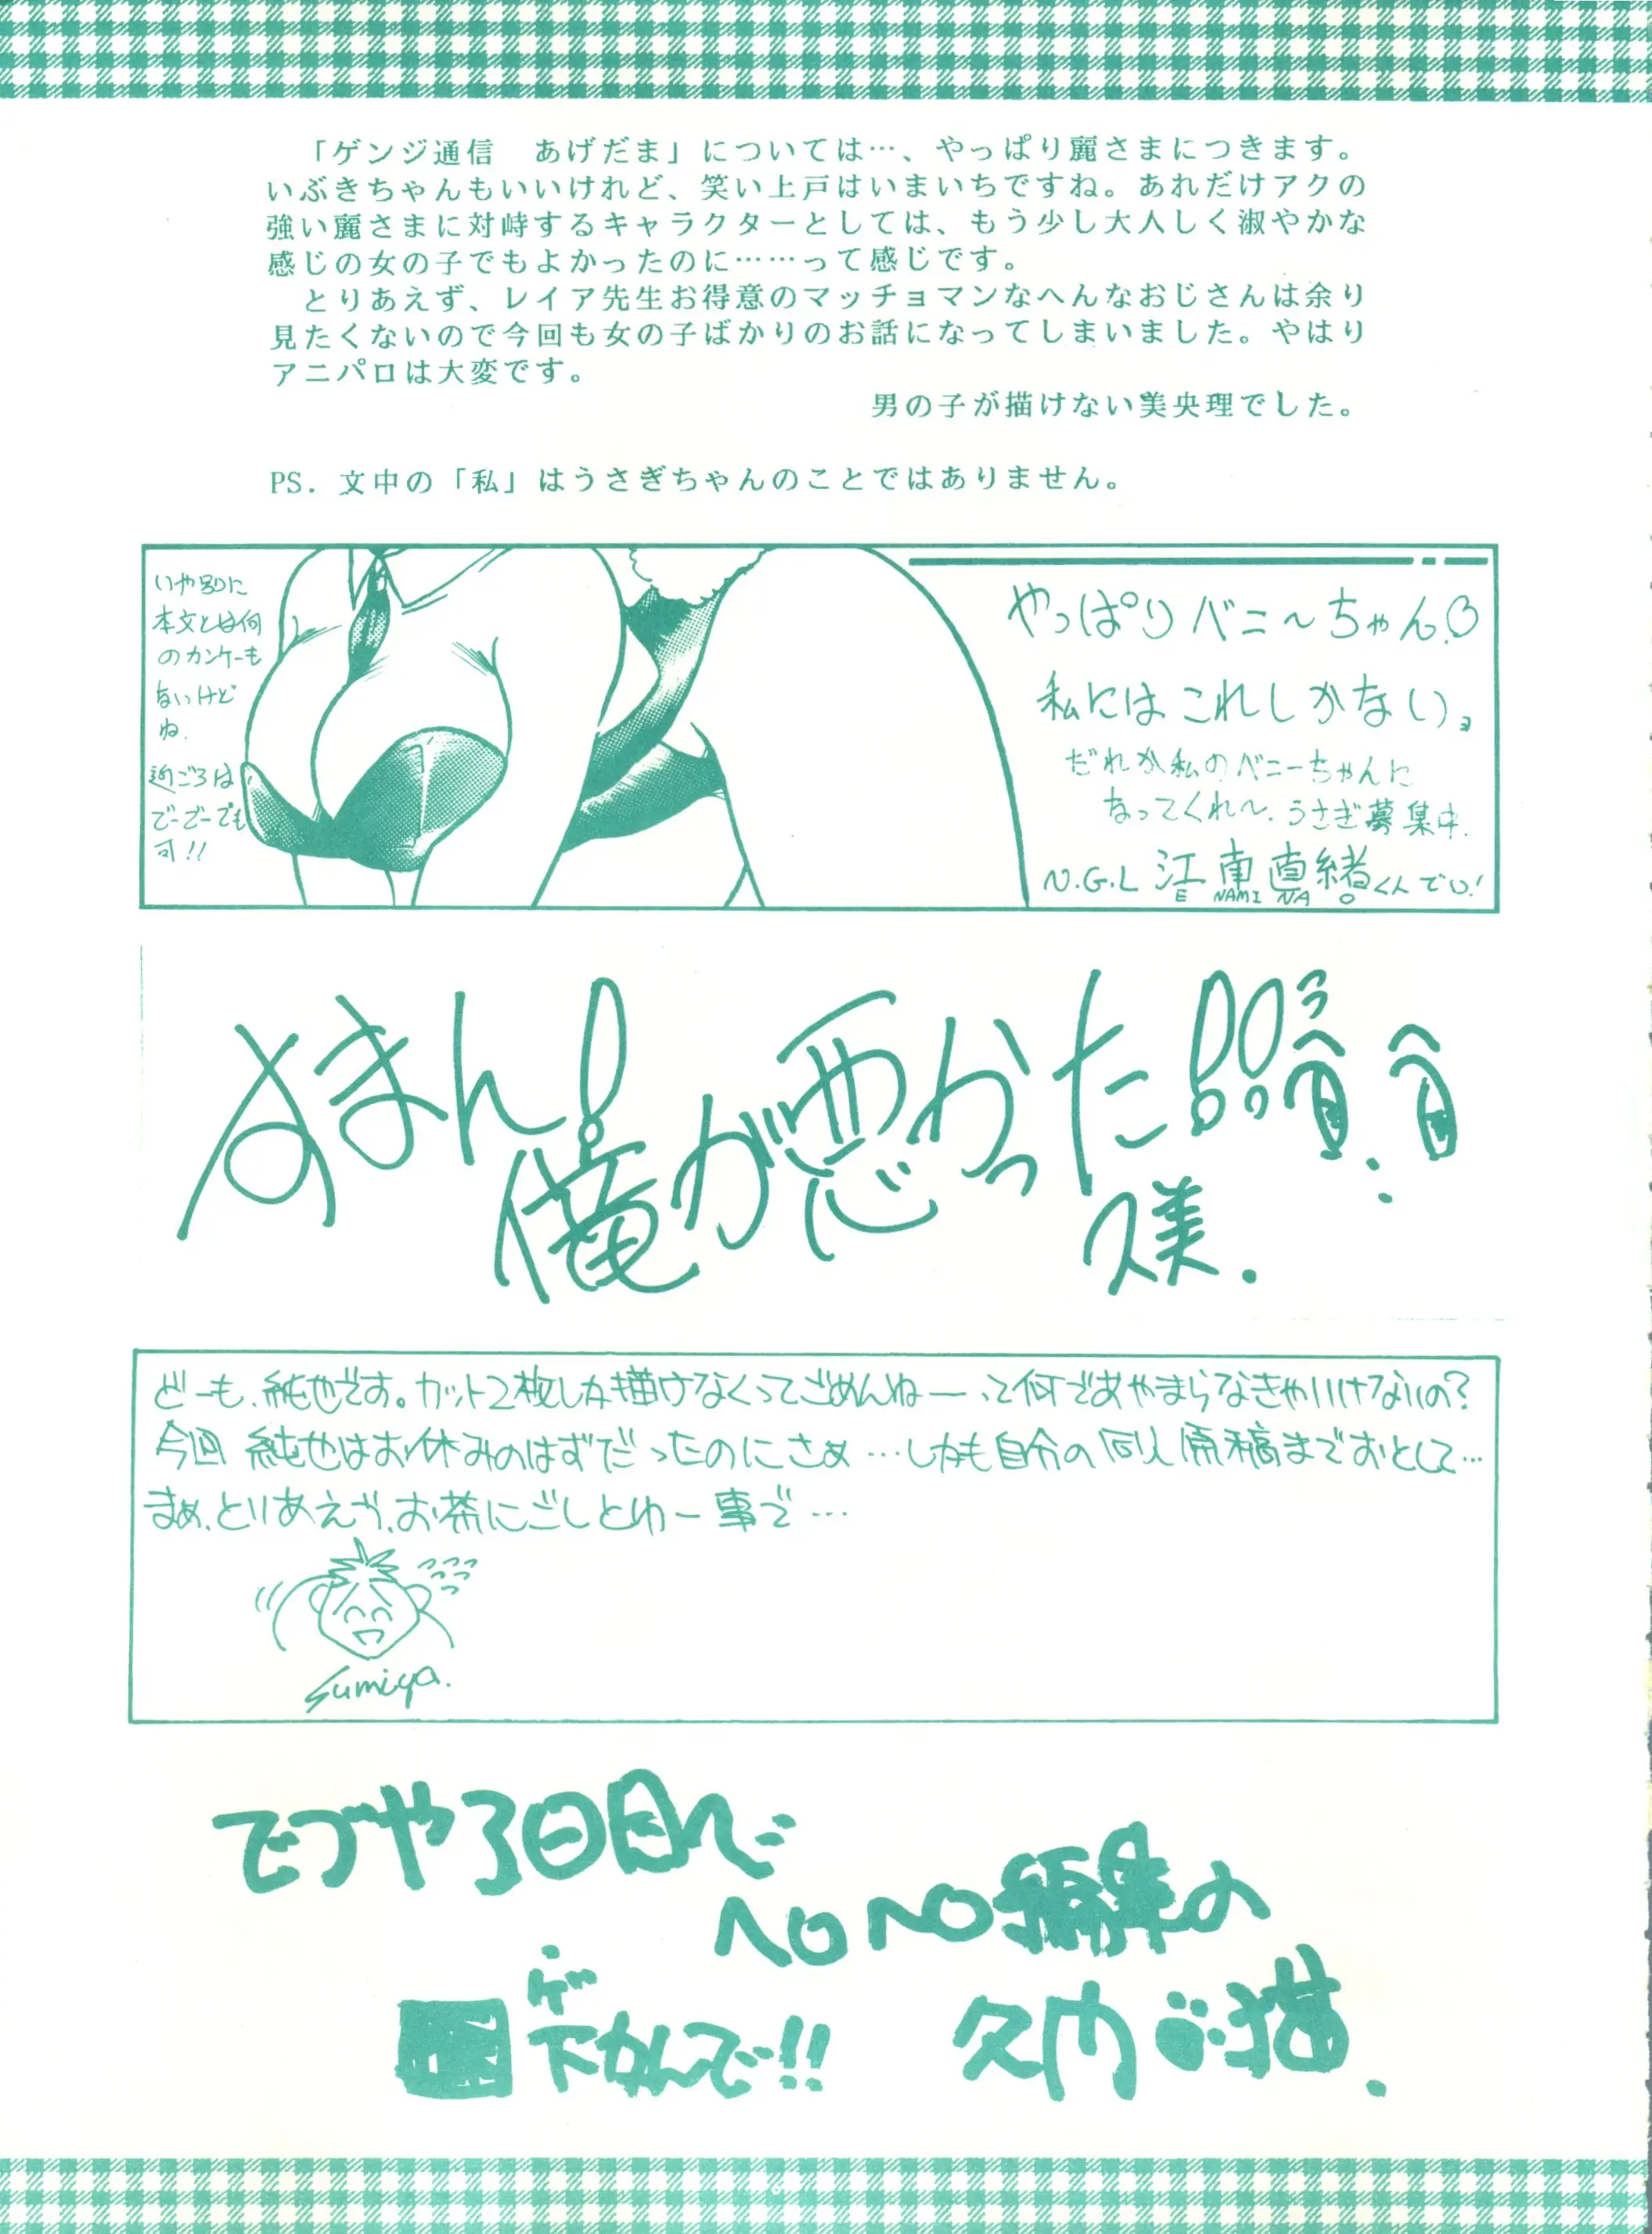 「ゲンジ通信　あげだま」については…、やっぱり麗さまにつきます。
いぶきちゃんもいいけれど、笑い上戸はいまいちですね。あれだけアクの
強い麗さまに対峙するキャラクターとしては、もう少し大人しく淑やかな
感じの女の子でもよかったのに……って感じです。
とりあえず、レイア先生お得意のマッチョマンなへんなおじさんは余り
見たくないので今回も女の子ばかりのお話になってしまいました。やはり
アニパロは大変です。
男の子が描けない美央理でした。
PS. 文中の「私」はうさぎちゃんのことではありません。
いや別に
本文とは何
のカンケーも
ないけど
ね.
近ごろは
でーでーでも
可!!
やっぱりバニ〜ちゃん♡
私にはこれしかない。
だれか私のバニーちゃんに
なってくれ〜. うさぎ募集中.
N.G.L 江南直緒くんでし!
E NAMI NA O
すまん!
俺が悪かった!!
久美.
どーも、純也です。カット2枚しか描けなくってごめんねー って何であやまらなきゃいけないの?
今回 純也はお休みのはずだったのにさぁ…しかも自分の同人原稿までおとして…
まぁ、とりあえず、お茶にごしとゆー事で…
Sumiya.
てつや3日目で
ヘロヘロ編集の
ゲ
下かんで!!
久内 猫.